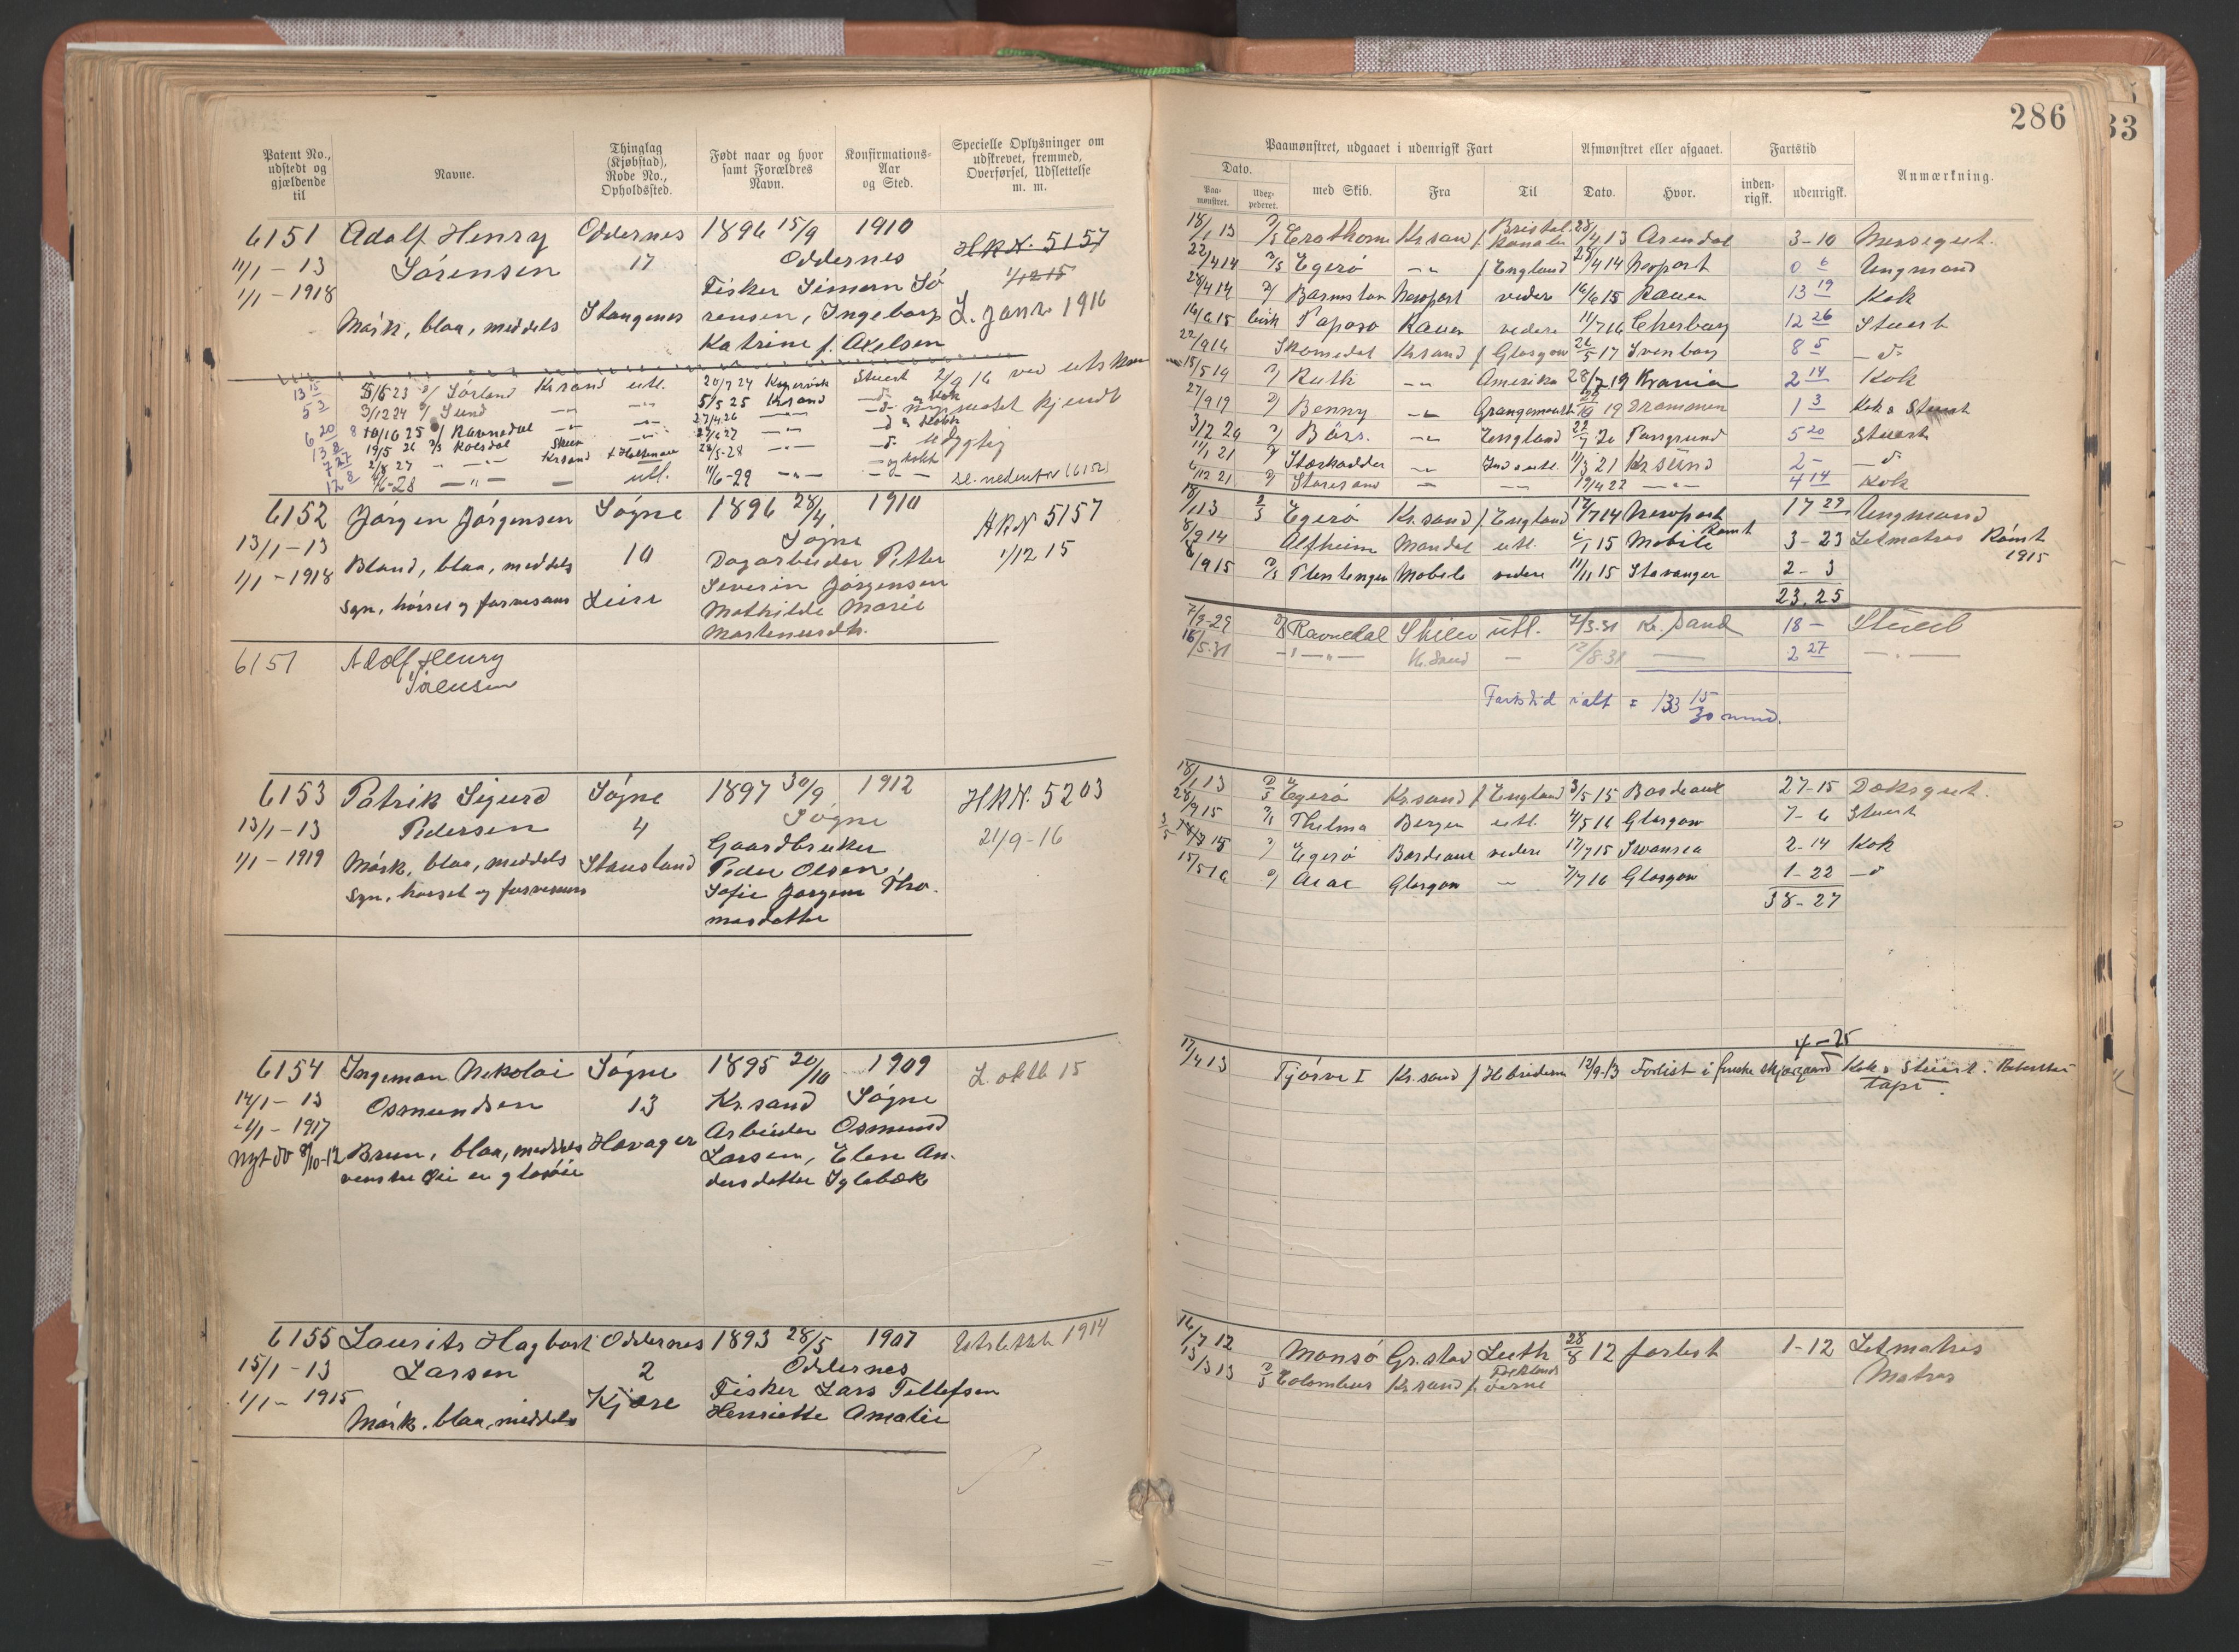 286
33
Patent No., udstedt og gjældende til
Navne.
Thinglag (Kjøbstad), Rode No., Opholdssted.
Født naar og hvor samt Forældres Navn.
Konfirmations-Aar og Sted.
Specielle Oplysninger om udskrevet, fremmed, Overførsel, Udslettelse m. m.
Paamønstret, udgaaet i udenrigsk Fart
Afmønstret eller afgaaet.
Fartstid
Anmærkning.
Dato.
Paa-mønstret.
Udex-pederet.
med Skib.
Fra
Til
Dato.
Hvor.
inden-rigsk.
udenrigsk.
6151 Adolf Henry Oddernes 1896 15/9 1910 H.R.N. 5157
11/1 - 13 Sørensen 17 Oddernes 1/12 15
1/1 - 1918 Fisker Simern Sø
Mørk, blaa, meddels Stangenes rensen, Ingeborg L. janr. 1916
Katrine f. Akelsen
13 15 5/6 23 Sørland Kr.sand utl. 20/7 24 Kopervik Stuert 2/9 16 ved utskr
5 2 3/12 24 Sund -"- -"- 5/5 25 Kr.sand -d- kok
6 20 10/10 25 Ravnedal -"- -"- 27/4.26 -"-
13 8 19/5 26 Rolsdal Skien
7 27 2/8 27 -"- Kr.sand 28/5-28 -"-
12 8 4/6-28 -"- utl. 11/6-29 -"- se nedenfor (6152)
udygtig
18/1 13 Krsand Bristol kanalen 28/4 13 Arendal 3-10 Messegut.
22/4 14 Egerø -"- f. England 28/4 14 Newport 0 6 Ungmand
28/4 14 Barmston Newport videre 16/6 15 Rauen 13 19 Kok
16/6 15 Taposo Rauen videre 11/7 16 Cherbourg 12 26 Stuert
22/9 16 Skomedal Krsand f. Glasgow 26/5 17 Svenborg 8 5 -d-
15/5 19 Ruth -"- Amerika 28/7 19 Krania 2 14 Kok
27/9 19 Benny -"- Grangemouth 19 Drammen 1 3 Kok & Stuert
3/2 20 Bärs. -"- England 22/7 20 Porsgrund 5 20 Stuert
11/1 21 Stærkodder -"- Ind & utl. 11/3 21 Krsund 2 - -d-
6/12 21 Storesand -"- -"- 19/4 22 -"- 4 14 Kok
6152 Jørgen Jørgensen Søgne 1896 28/4 1910 H.R.N 5157
13/1 - 13 Søgne 1/12 15
Blond, blaa, meddels 10 Dagarbeider Petter
1/1 - 1918 Severin Jørgensen
Syn, hørsel og farvesans Leire Mathilde Marie
Mortensensdtr.
18/1 13 Egerø Kr.sand f. England 17/7 14 Newport 17 29 Ungmand
8/9 14 Alfheim Mandal utl. 2/1 15 Mobile Rømt 3-23 Letmatros Rømt 1915
8/9 15 Flentengen Mobile videre 11/11 15 Stavanger 2-3
23.25
6151 Adolf Henry
Sørensen
7/9-29 Ravnedal Skien utl. 7/3-31 Kr.sand 18 - Stuert
18/5-31 -"- Kr.sand - 12/8-31 - 2 27 -"-
Fartstid ialt = 133 15/30 mnd.
6153 Patrik Sigurd Søgne 1897 30/9 1912 H.R.N. 5203
13/1 - 13 Pedersen 4 Søgne 21/9-16
Gaardbruker
1/1 - 1919 Mørk, blaa, meddels Stausland Peder Olsen,
Syn, hørsel og farvesans Sofie Jørgem Tho-
masdatter
18/1 13 Egerø Kr.sand f. England 3/5 15 Bordeaux 27-15 Doksgut.
28/9 15 Thelma Bergen utl. 4/5 16 Glasgow 7-6 Stuert
3/5 15 Egerø Bordeaux videre 17/7 15 Swansea 2-14 Kok
15/5 16 Acac Glasgow - 7/7 16 Glasgow 1-22 -d-
38-27
6154 Ingeman Nikolai Søgne 1895 20/10 1909 L. oktb 15
14/1 - 13 Osmundsen 13 Kr.sand Søgne
1/1 - 1917 Arbeider Osmund
Nyt do 8/10-12 Brun, blaa, meddels Havager Larsen, Elen An-
venstre øie er glasøie dersdatter Iglebæk
4-25
17/4 13 Tjørve I Kr.sand f. Hebriderne 12/9 13 Forlist i finske skjærgaard Kok & Stuert.
tapt.
6155 Laurits Hagbart Oddernes 1893 28/5 1907 Utslettet 1914
15/1 - 13 Larsen 2 Oddernes
1/1 - 1915 Kjøre Fisker Lars Tellefsen
Mørk, blaa, meddels Henriette Amalie
16/7 12 Monsø Gr.stad Leith 28/8 12 forlist 1-12 Letmatros
13/3 13 Colombus Kr.sand f. Falklandsøerne Matros